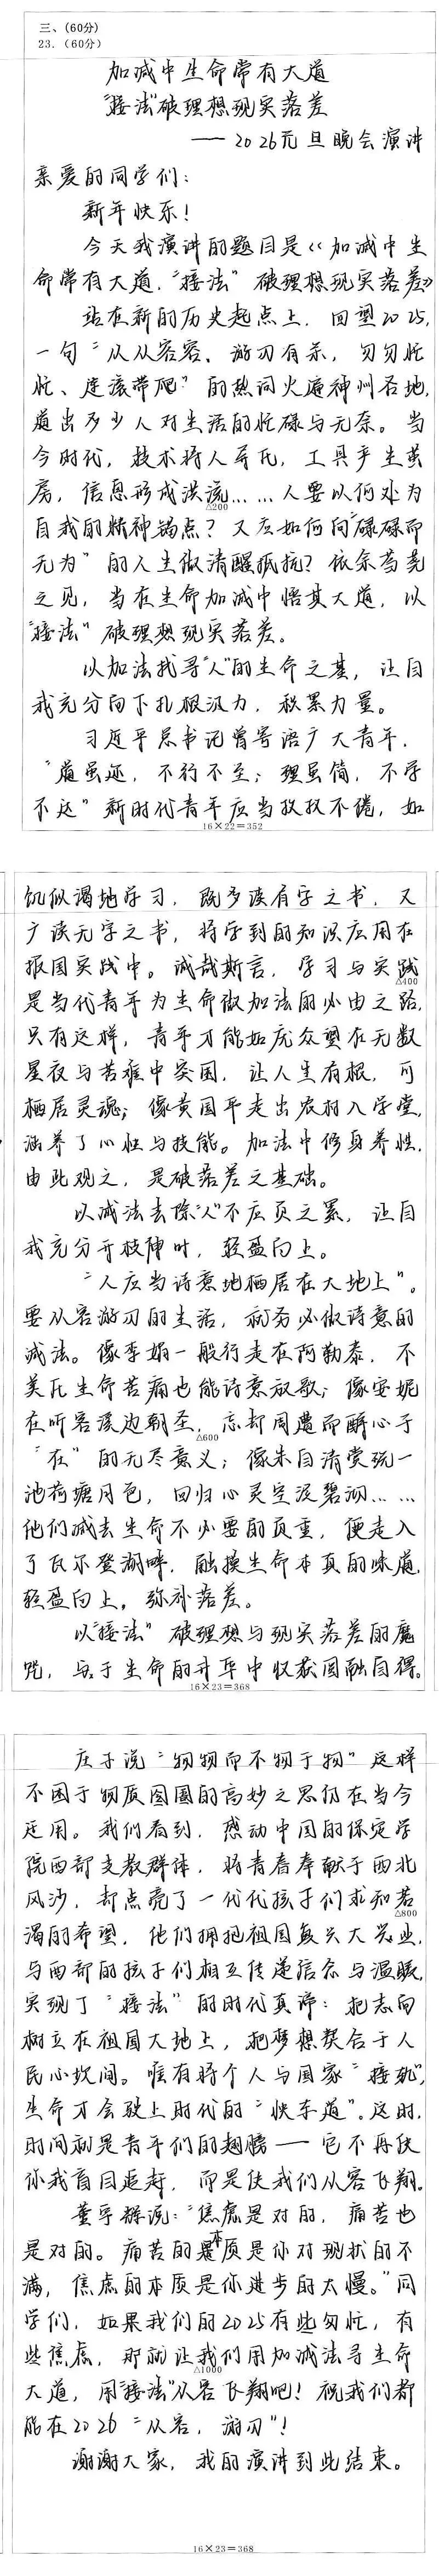 三、(60分)
23.（60分）
加减中生命常有大道
“接法”破理想现实落差
——2026元旦晚会演讲
亲爱的同学们：
新年快乐！
今天我演讲的题目是《加减中生
命常有大道，“接法”破理想现实落差》
站在新的历史起点上，回望2025，
一句“从从容容、游刃有余，匆匆忙
忙、连滚带爬”的热词火遍神州各地，
道出多少人对生活的忙碌与无奈。当
今时代，技术将人异化，工具产生茧
房，信息形成洪流……人要以何处为
△200
自我的精神锚点？又应如何向“碌碌而
无为”的人生做清醒抵抗？依余刍荛
之见，当在生命加减中悟其大道，以
“接法”破理想现实落差。
以加法找寻“人”的生命之基，让自
我充分向下扎根汲力，积累力量。
习近平总书记曾寄语广大青年，
“道虽迩，不行不至；理虽简，不学
不达”新时代青年应当孜孜不倦，如
16×22=352
饥似渴地学习，既多读有字之书，又
广读无字之书，将学到的知识应用在
报国实践中。诚哉斯言，学习与实践
△400
是当代青年为生命做加法的必由之路，
只有这样，青年才能如庞众望在无数
星夜与苦难中突围，让人生有根，可
栖居灵魂；像黄国平走出农村入学堂，
涵养了心性与技能。加法中修身养性，
由此观之，是破落差之基础。
以减法去除“人”不应负之累，让自
我充分开枝伸叶，轻盈向上。
“人应当诗意地栖居在大地上”。
要从容游刃的生活，就务必做诗意的
减法。像李娟一般行走在阿勒泰，不
美化生命苦痛也能诗意放歌；像安妮
在听客溪边朝圣，忘却周遭而醉心于
△600
“在”的无尽意义；像朱自清赏玩一
池荷塘月色，回归心灵空泛碧湖……
他们减去生命不必要的负重，便走入
了瓦尔登湖畔，触摸生命本真的味道，
轻盈向上，弥补落差。
以“接法”破理想与现实落差的魔
咒，与于生命的升华中收获圆融自得。
16×23=368
庄子说“物物而不物于物”这样
不困于物质囹圄的高妙之思仍在当今
适用。我们看到，感动中国的保定学
院西部支教群体，将青春奉献于西北
风沙，却点亮了一代代孩子们求知若
△800
渴的希望，他们拥抱祖国复兴大业，
与西部的孩子们相互传递信念与温暖，
实现了“接法”的时代真谛：把志向
树立在祖国大地上，把梦想契合于人
民心坎间。唯有将个人与国家“接轨”，
生命才会驶上时代的“快车道”。这时，
时间就是青年们的翅膀——它不再使
你我盲目追赶，而是使我们从容飞翔。
董宇辉说：“焦虑是对的，痛苦也
是对的。痛苦的本质是你对现状的不
满，焦虑的本质是你进步的太慢。”同
学们，如果我们的2025有些匆忙，有
些焦虑，那就让我们用加减法寻生命
△1000
大道，用“接法”从容飞翔吧！祝我们都
能在2026“从容，游刃”！
谢谢大家，我的演讲到此结束。
16×23=368